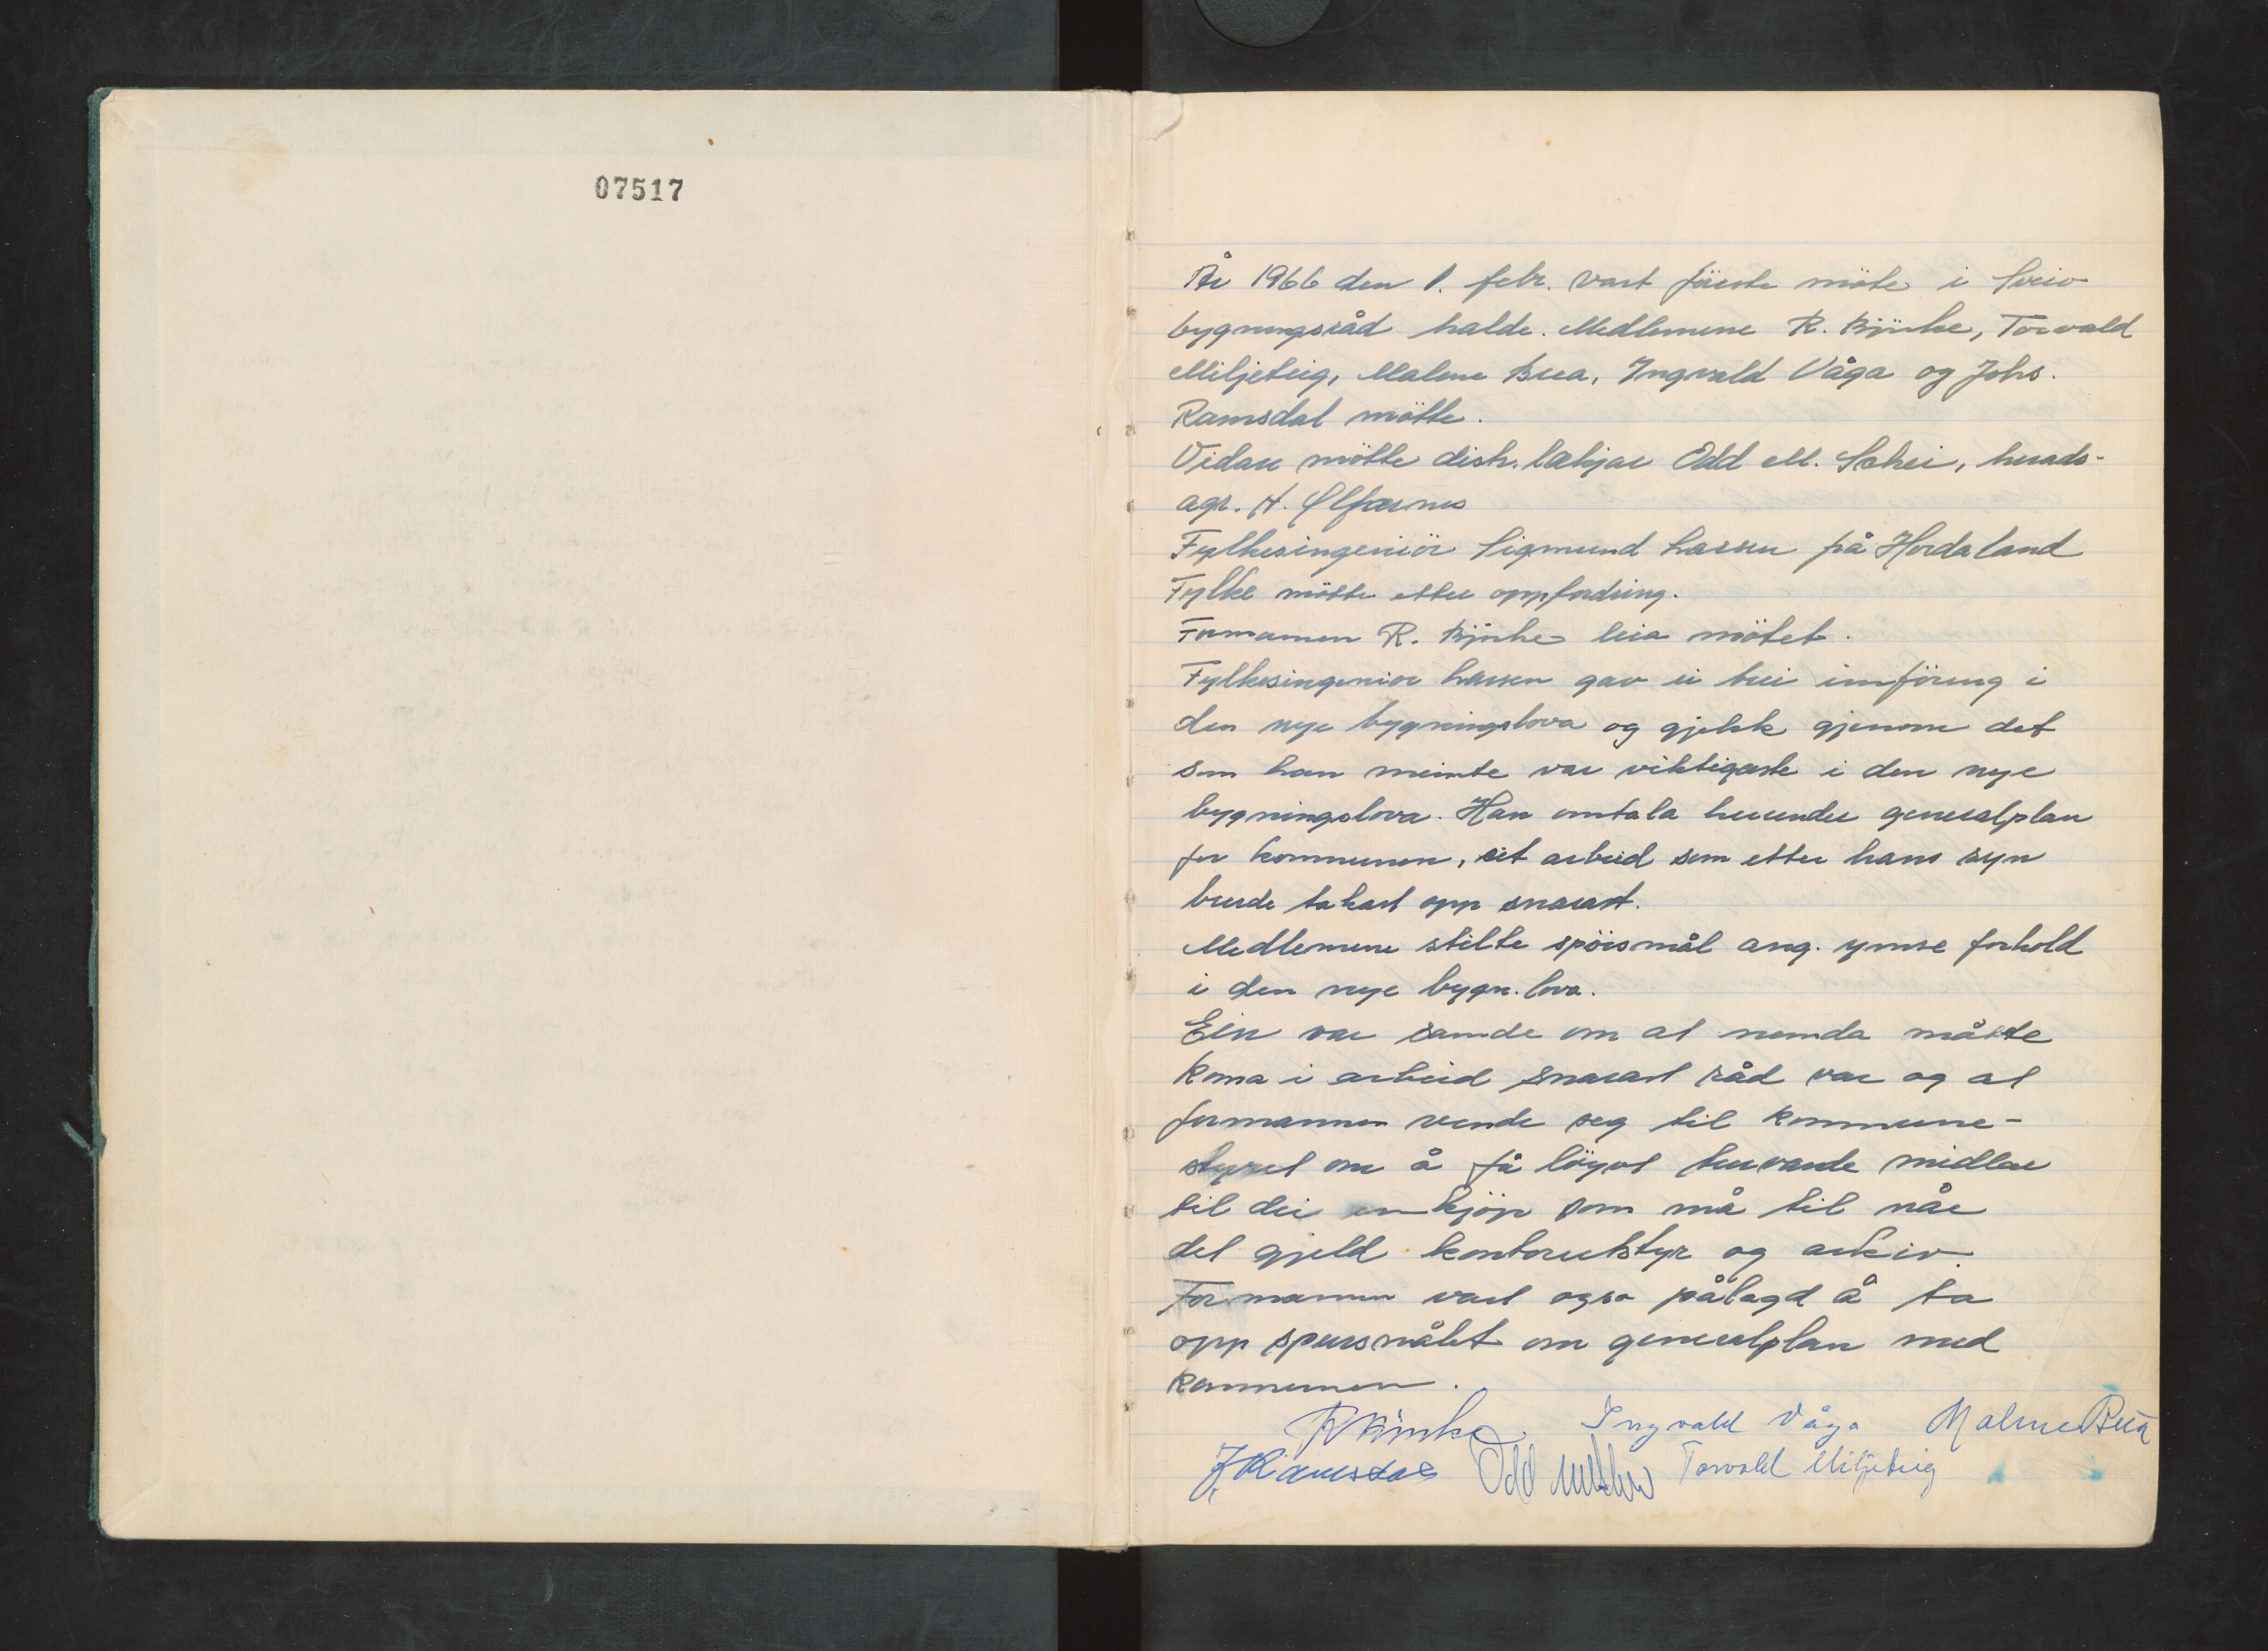 07517
År 1966 den 1. febr. vart förste möte i Sveio
bygningsråd halde. Medlemene R. Björke, Torvald
Miljeteig, Malene Bua, Ingvald Våga og Johs.
Ramsdal mötte.
Vidare mötte distr. lækjar Odd M. Schei, herads-
agr. H. Ølfærnes
Fylkesingeniör Sigmund Larsen på Hordaland
Fylke mötte etter oppfordring.
Formannen R. Björke leia mötet.
Fylkesingeniör Larsen gav ei brei innföring i
den nye bygningslova og gjekk gjenom det
som han meinte var viktigaste i den nye
bygningslova. Han omtala herunder generalplan
for kommunen, eit arbeid som etter hans syn
burde takast opp snarast.
Medlemene stilte spörsmål ang. ymse forhold
i den nye bygn. lova.
Ein var samde om at nemnda måtte
koma i arbeid snarast råd var og at
formannen vende seg til kommune-
styret om å få löyvt turvande midlar
til dei innkjöp som må til når
det gjeld kontorutstyr og arkiv.
Formannen vart ogso pålagd å ta
opp spursmålet om generalplan med
kommunen.
R Björke Ingvald Våga Malene Bua
J Ramsdal Odd M Schei Torvald Miljeteig